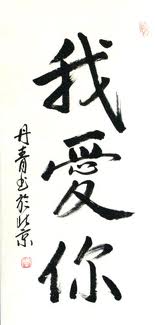 我愛你
丹青书於北京